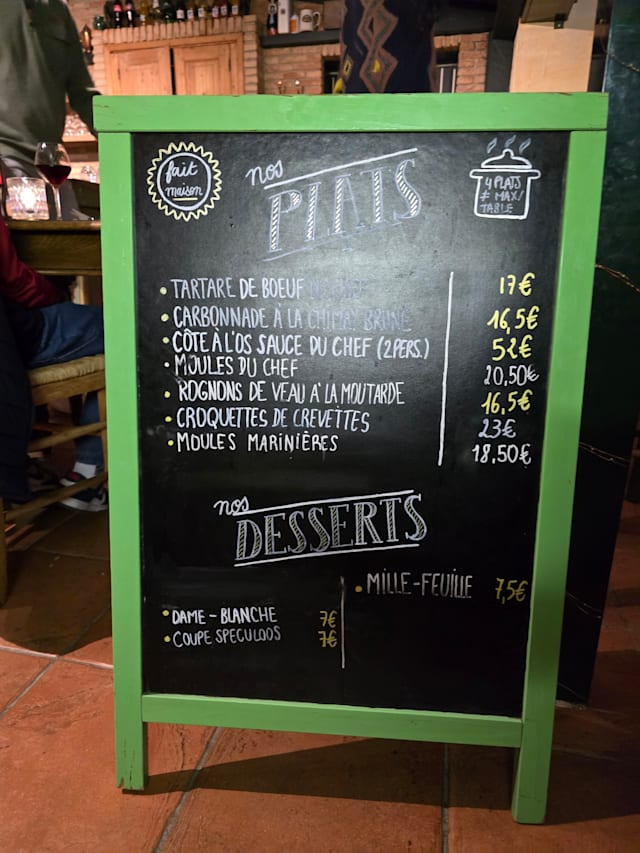 fait
maison
nos
PLATS
4 PLATS
≠ MAX/
TABLE
• TARTARE DE BOEUF DU CHEF 17€
• CARBONNADE À LA CHIMAY BRUNE 16,5€
• CÔTE À L'OS SAUCE DU CHEF (2PERS.) 52€
• MOULES DU CHEF 20,50€
• ROGNONS DE VEAU À LA MOUTARDE 16,5€
• CROQUETTES DE CREVETTES 23€
• MOULES MARINIÈRES 18,50€
nos
DESSERTS
• MILLE-FEUILLE 7,5€
• DAME-BLANCHE 7€
• COUPE SPECULOOS 7€